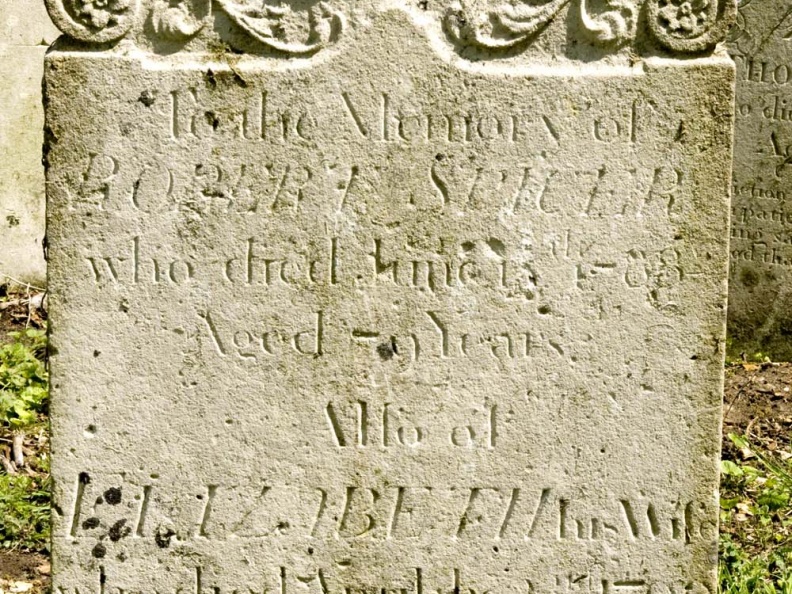 To the Memory of
ROBERT SPICER
who died June 13th 1788
Aged 79 Years
Alſo of
ELIZABETH his Wife
who died April the